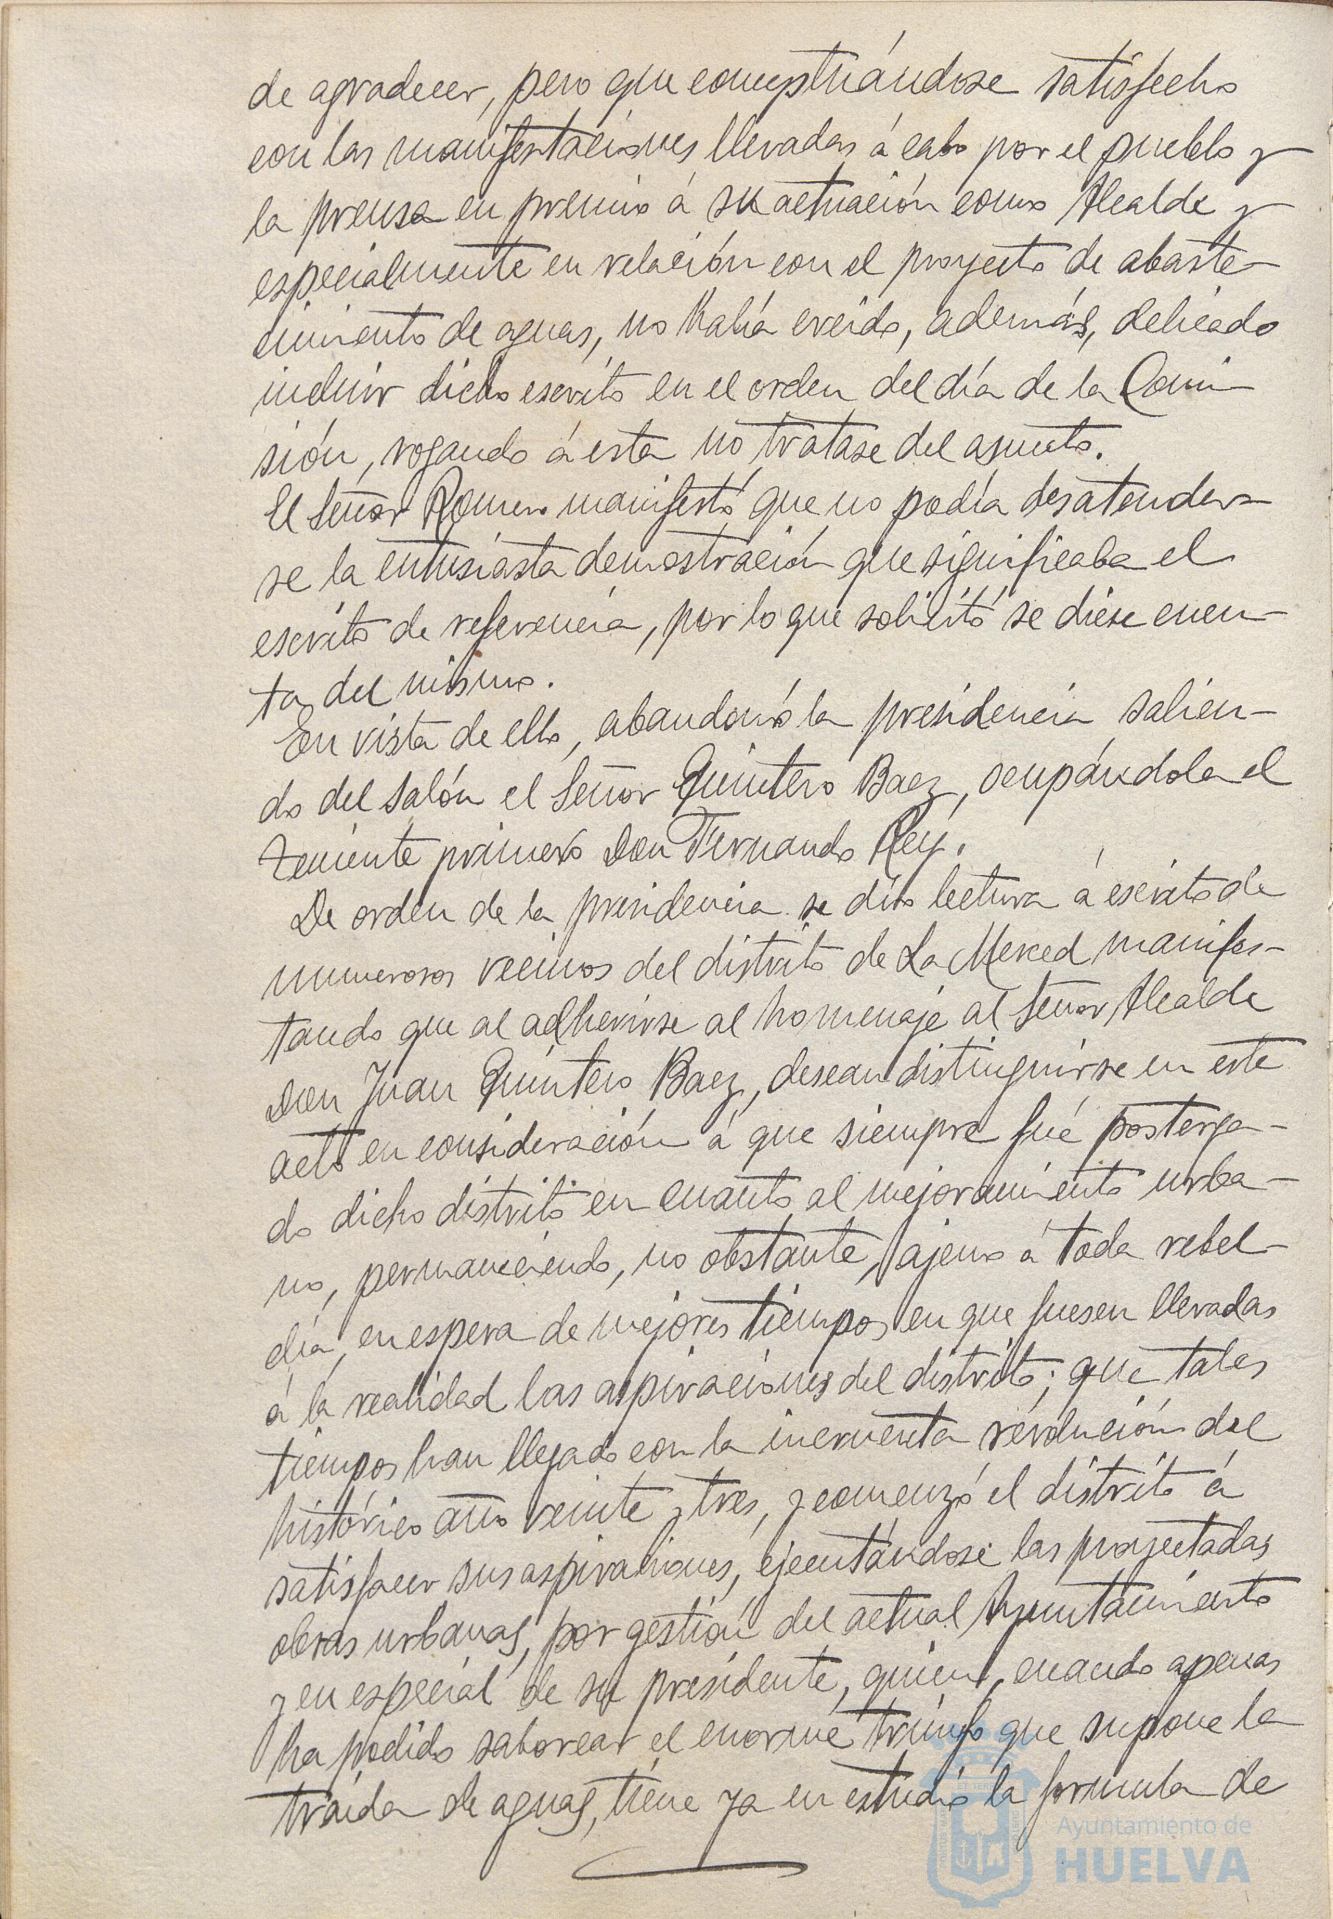 de agradecer, pero que conceptuándose satisfecho
con las manifestaciones llevadas á cabo por el pueblo y
la prensa en premio á su actuación como Alcalde y
especialmente en relación con el proyecto de abaste-
cimiento de aguas, no había creido, además, delicado
incluir dicho escrito en el orden del día de la Comi-
sión, rogando á esta no tratase del asunto.
El Señor Romero manifestó que no podía desatender-
se la entusiasta demostración que significaba el
escrito de referencia, por lo que solicitó se diese cuen-
ta del mismo.
En vista de ello, abandonó la presidencia salien-
do del salón el Señor Quintero Baez, ocupándola el
Teniente primero Don Fernando Rey.
De orden de la presidencia se dió lectura á escrito de
numerosos vecinos del distrito de La Merced manifes-
tando que al adherirse al homenaje al Señor Alcalde
Don Juan Quintero Baez, desean distinguirse en este
acto en consideración á que siempre fué posterga-
do dicho distrito en cuanto al mejoramiento urba-
no, permaneciendo, no obstante, ajeno á toda rebel-
día, en espera de mejores tiempos en que fuesen llevadas
á la realidad las aspiraciones del distrito; que tales
tiempos han llegado con la incruenta revolución del
histórico año veinte y tres, y comenzó el distrito á
satisfacer sus aspiraciones, ejecutándose las proyectadas
obras urbanas, por gestión del actual Ayuntamiento
y en especial de su presidente, quien, cuando apenas
ha podido saborear el enorme triunfo que supone la
traída de aguas, tiene ya en estudio la formula de
Ayuntamiento de
HUELVA